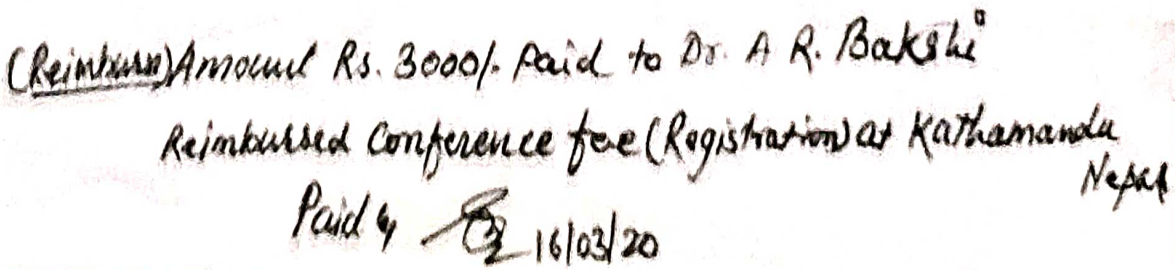 (Reimburse) Amount Rs. 3000/- Paid to Dr. A R. Bakshi
Reimbussed Conference fee (Registration) at Kathamandu
Nepal
Paid by 16/03/20